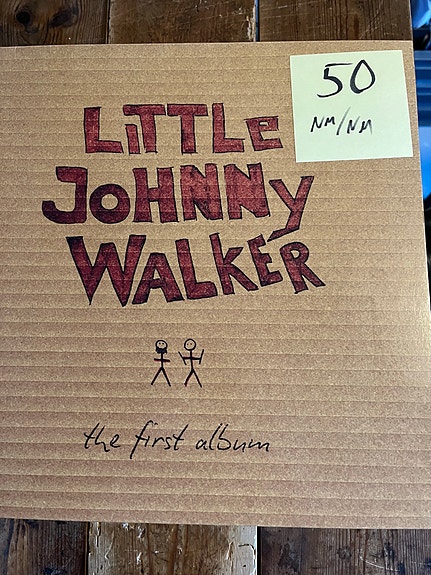 50
NM/NM
LiTTLe
JoHNNy
WALKER
the first album